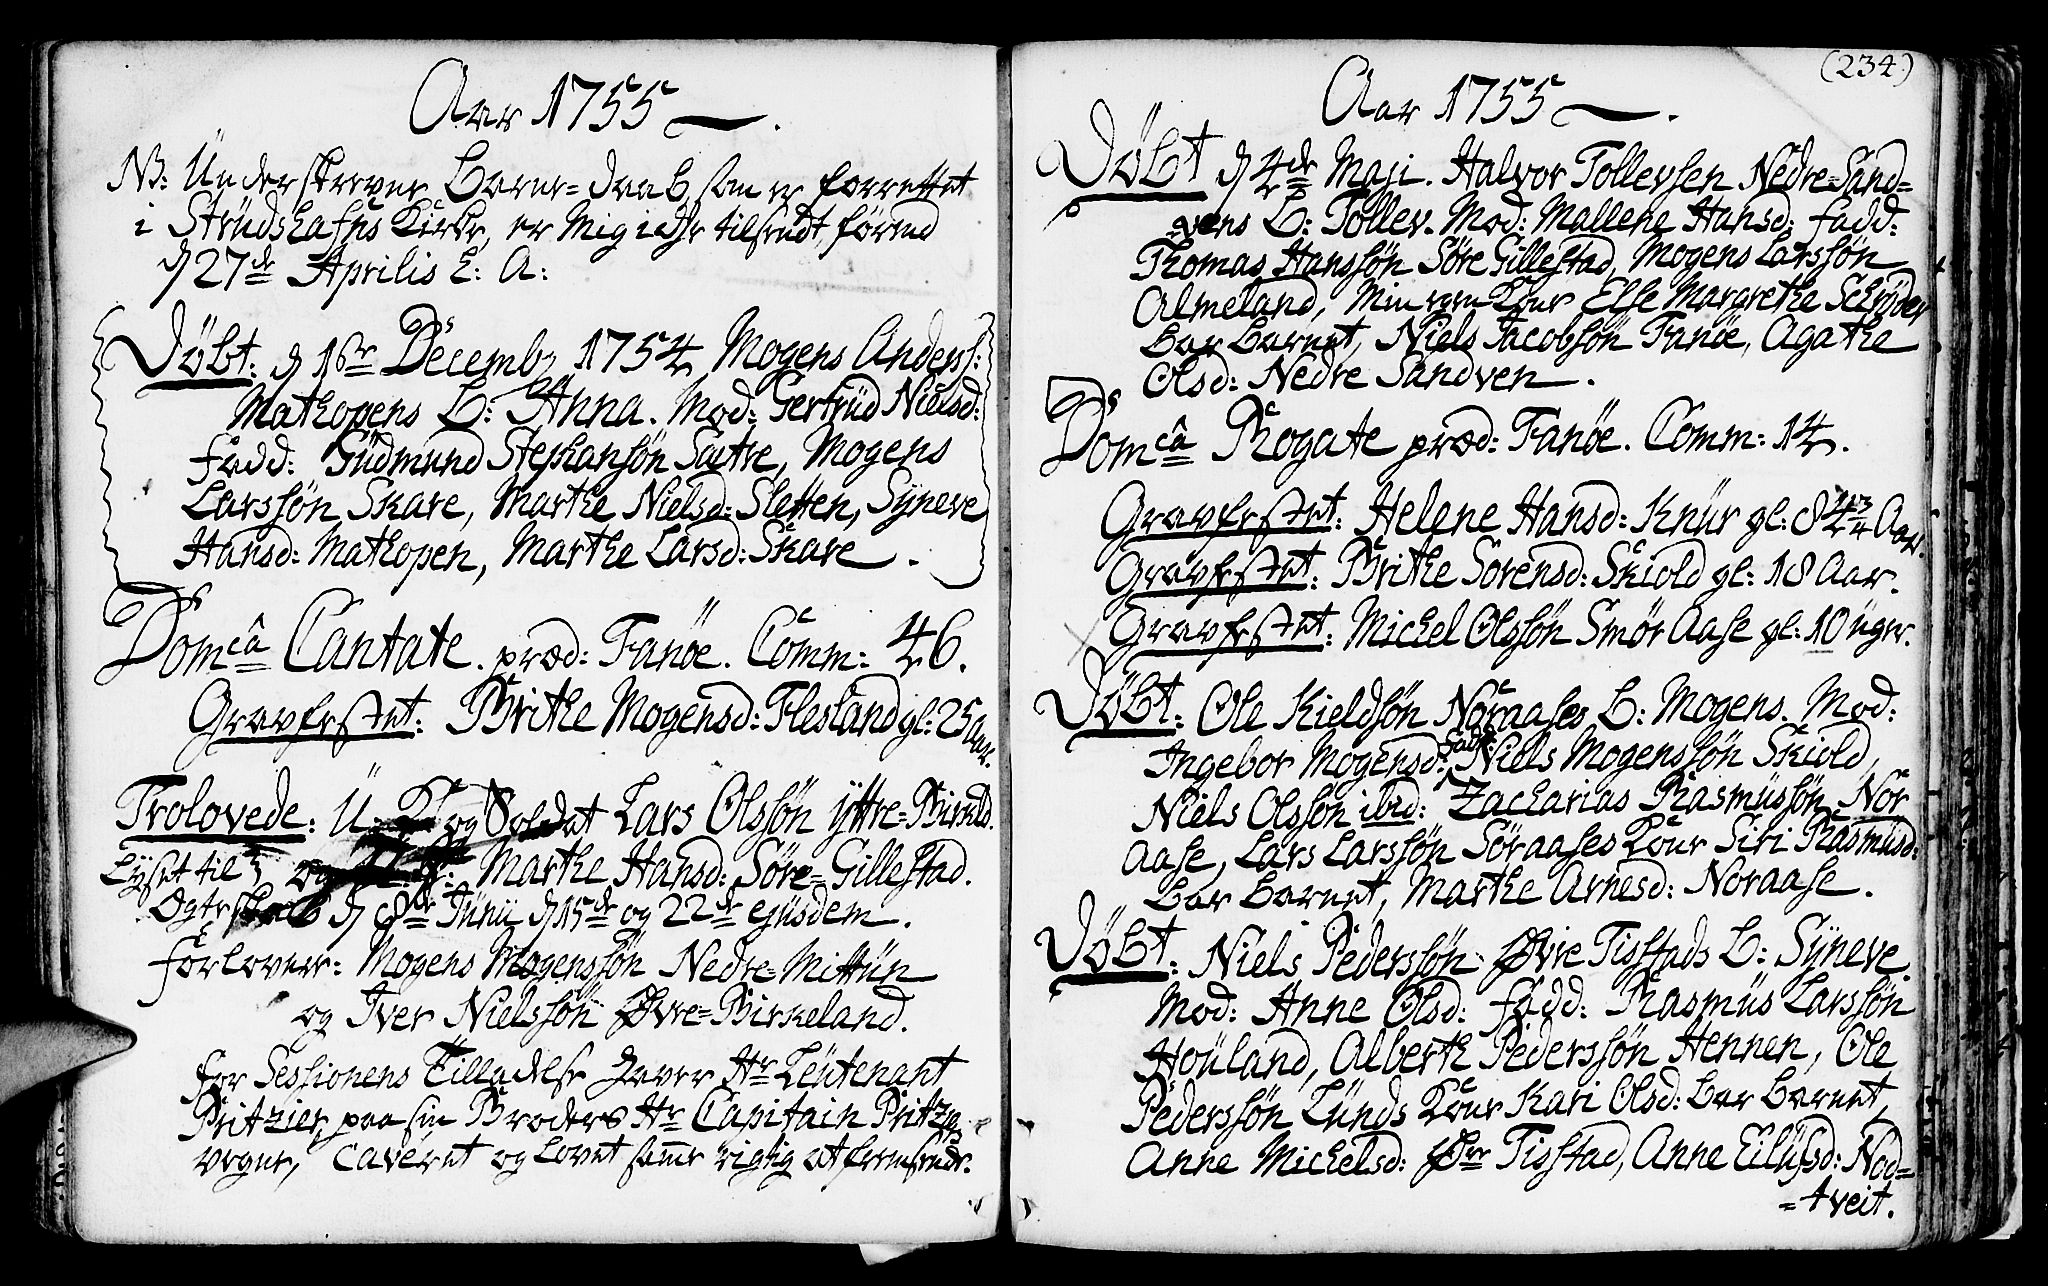 Aar 1755
NB: Underskrevne Barne=Daab, som er forrettet
i Strudshafns Kirke, er mig ickje tilsendt, førend
d 27de Aprilis h: A:
Døbt: d 16r Decemb 1754 Mogens Anders:
Mathopens B: Anna. Mod: Gertrüd Nielsd:
Fadd: Güdmund Stephansøn Sætre, Mogens
Larssøn Skare, Marthe Nielsd: Sletten, Sÿneve
Hansd: Mathopen, Marthe Larsd: Skare.
Domcâ Cantate. præd: Fanöe. Comm: 46.
Gravfestet: Brithe Mogensd: Flesland gl: 25 Aar.
Trolovede: U: K og Soldat Lars Olsøn Yttre=Birkeld.
Lyset til og Marthe Hansd: Søre=Gillestad.
Ægteskab d 8de Junii d 15de og 22de ejusdem.
Forlovere: Mogens Mogenssøn Nedre=Mittün
og Iver Nielssøn Øvre=Birkeland.
for Sessionens Tilladelse haver Hr Leutenant
Pritzier, paa sin Broders Hr Capitain Pritziers
vegne, caveret og lovet samme rigtig at fremsende.
(234)
Aar 1755
Døbt d 4de Maji. Halvor Tollevsen Nedre=Sand=
=vens B: Tollev. Mod: Mallene Hansd: Fadd:
Thomas Hanssøn Søre Gillestad, Mogens Larssøn
Almeland, Min egen Kone Else Margrethe Schrøder
bar Barnet, Niels Jacobsøn Fanöe, Agathe
Olsd: Nedre Sandven.
Domcâ Rogate præd: Fanöe. Comm: 14.
Gravfestet: Helene Hansd: Knür gl: 84 3/4 Aar.
Gravfestet: Brithe Sörensd: Skiold gl: 18 Aar.
Gravfestet: Michel Olssøn SmörAase gl: 10 uger.
Døbt: Ole Kieldsøn Noraases B: Mogens. Mod:
Ingebor Mogensd: Fadd: Niels Mogenssøn Skiold,
Niels Olssøn ibid: Zacharias Rasmüssøn Nor
aase, Lars Larssøn Söraases Kone Siri Rasmüsd:
bar Barnet, Marthe Arnesd: Noraase.
Døbt: Niels Pederssøn Øvre Tisstads B: Sÿneve.
Mod: Anne Olsd: Fadd: Rasmüs Larssøn
Houland, Alberth Pederssøn Hennen, Ole
Pederssøn Lünds Kone Kari Olsd: bar Barnet,
Anne Michelsd: Øvre Tisstad, Anne Eilufsd: Nod=
=tveit.